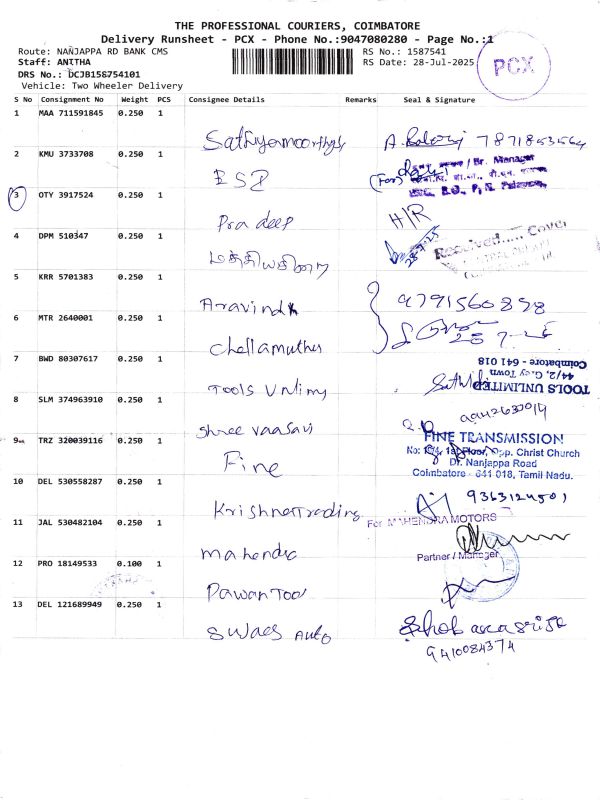 THE PROFESSIONAL COURIERS, COIMBATORE
Delivery Runsheet - PCX - Phone No.:9047080280 - Page No.:1
Route: NANJAPPA RD BANK CMS
RS No.: 1587541
Staff: ANITHA
RS Date: 28-Jul-2025
DRS No.: DCJB158754101
Vehicle: Two Wheeler Delivery
PCX
S No Consignment No Weight PCS Consignee Details Remarks Seal & Signature
1 MAA 711591845 0.250 1
Sathyamoorthy
7871853564
2 KMU 3733708 0.250 1
ESI
(For) / Br. Manager
3 OTY 3917524 0.250 1
Pradeep
H/R
4 DPM 510347 0.250 1
Received..... Cover
5 KRR 5701383 0.250 1
Aravindh
9791560898
6 MTR 2640001 0.250 1
Chellamuthu
7 BWD 80307617 0.250 1
Tools Unlimy
TOOLS UNLIMITED
44/2, G, Town
Coimbatore - 641 018
8 SLM 374963910 0.250 1
Shree vaasavi
9 TRZ 320039116 0.250 1
Fine
FINE TRANSMISSION
No: 1st Floor, Opp. Christ Church
Dr. Nanjappa Road
Coimbatore - 641 018, Tamil Nadu.
10 DEL 530558287 0.250 1
Krishna Trading
9363124501
11 JAL 530482104 0.250 1
mahendra
For MAHENDRA MOTORS
Partner / Manager
12 PRO 18149533 0.100 1
Pawan Tool
13 DEL 121689949 0.250 1
Swaes Auto
9410084374